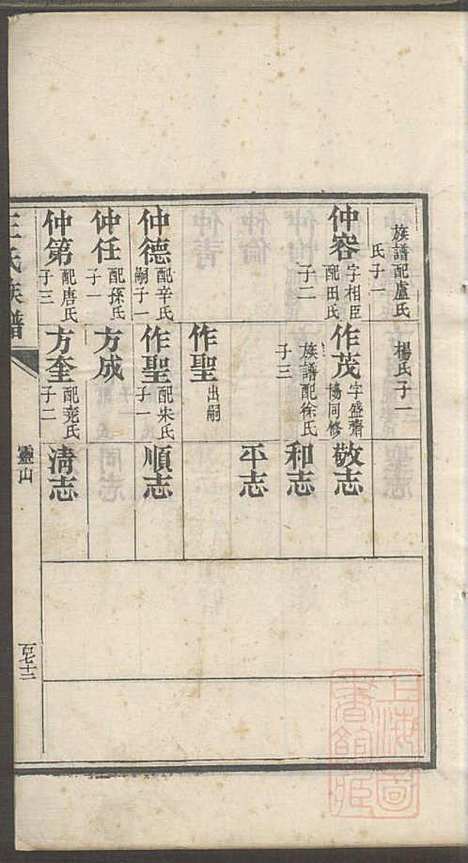 族譜配盧氏
氏子一
楊氏子一
仲容 字相臣 配田氏
子二
作茂 字盛齋 協同修
族譜配徐氏
子三
敬志
和志
平志
作聖 出嗣
仲德 配辛氏 嗣子一
作聖 配朱氏 子一
順志
仲任 配孫氏 子一
方成
仲第 配唐氏 子三
方奎 配堯氏 子二
清志
王氏族譜
靈山